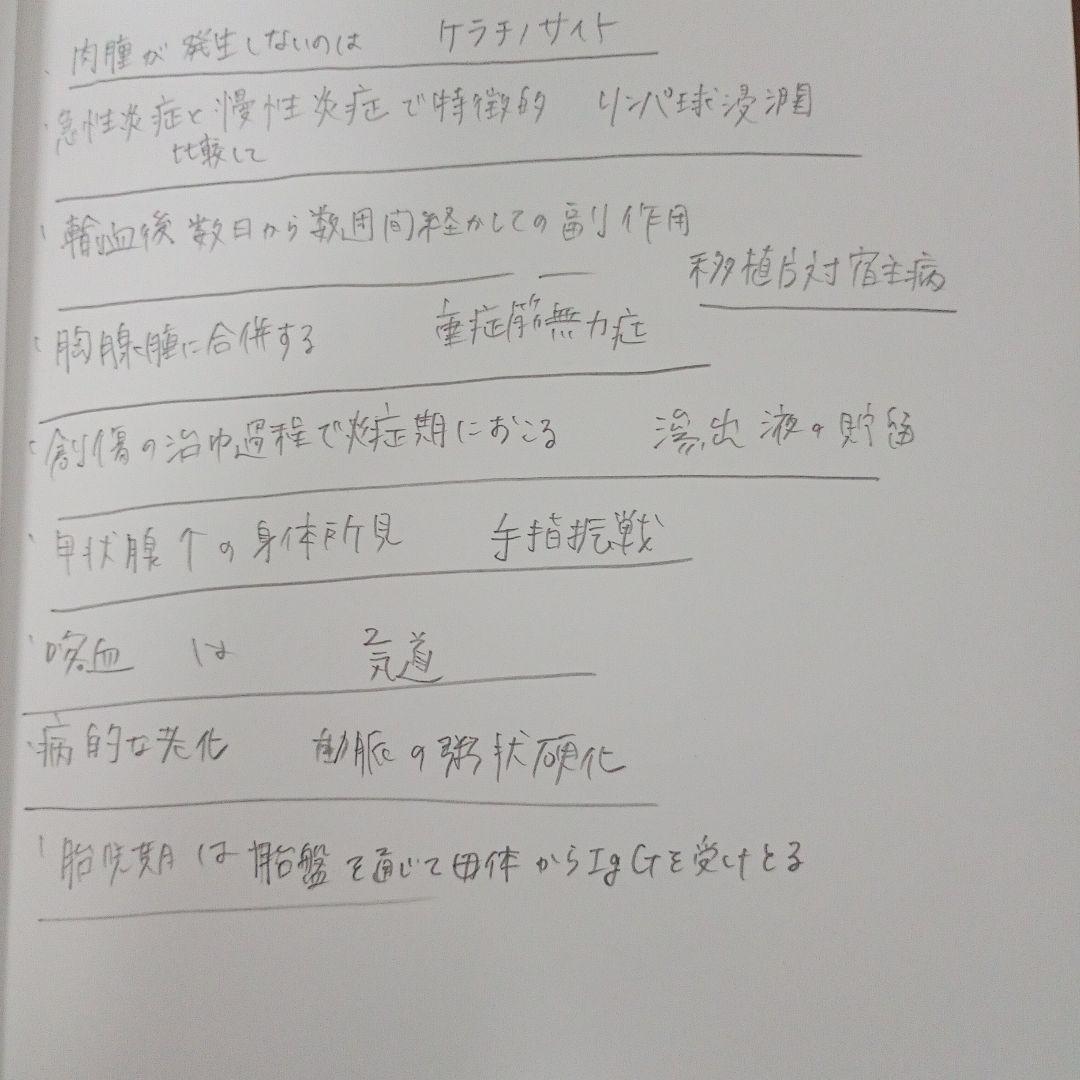 ・肉腫が発生しないのは ケラチノサイト
・急性炎症と慢性炎症で特徴的 リンパ球浸潤
比較して
・輸血後数日から数週間経かしての副作用
移植片対宿主病
・胸腺腫に合併する 重症筋無力症
・創傷の治ゆ過程で炎症期におこる 滲出液の貯留
・甲状腺↑の身体所見 手指振戦
・喀血 は 気道
・病的な老化 動脈の粥状硬化
・胎児期は胎盤を通じて母体からIgGを受けとる